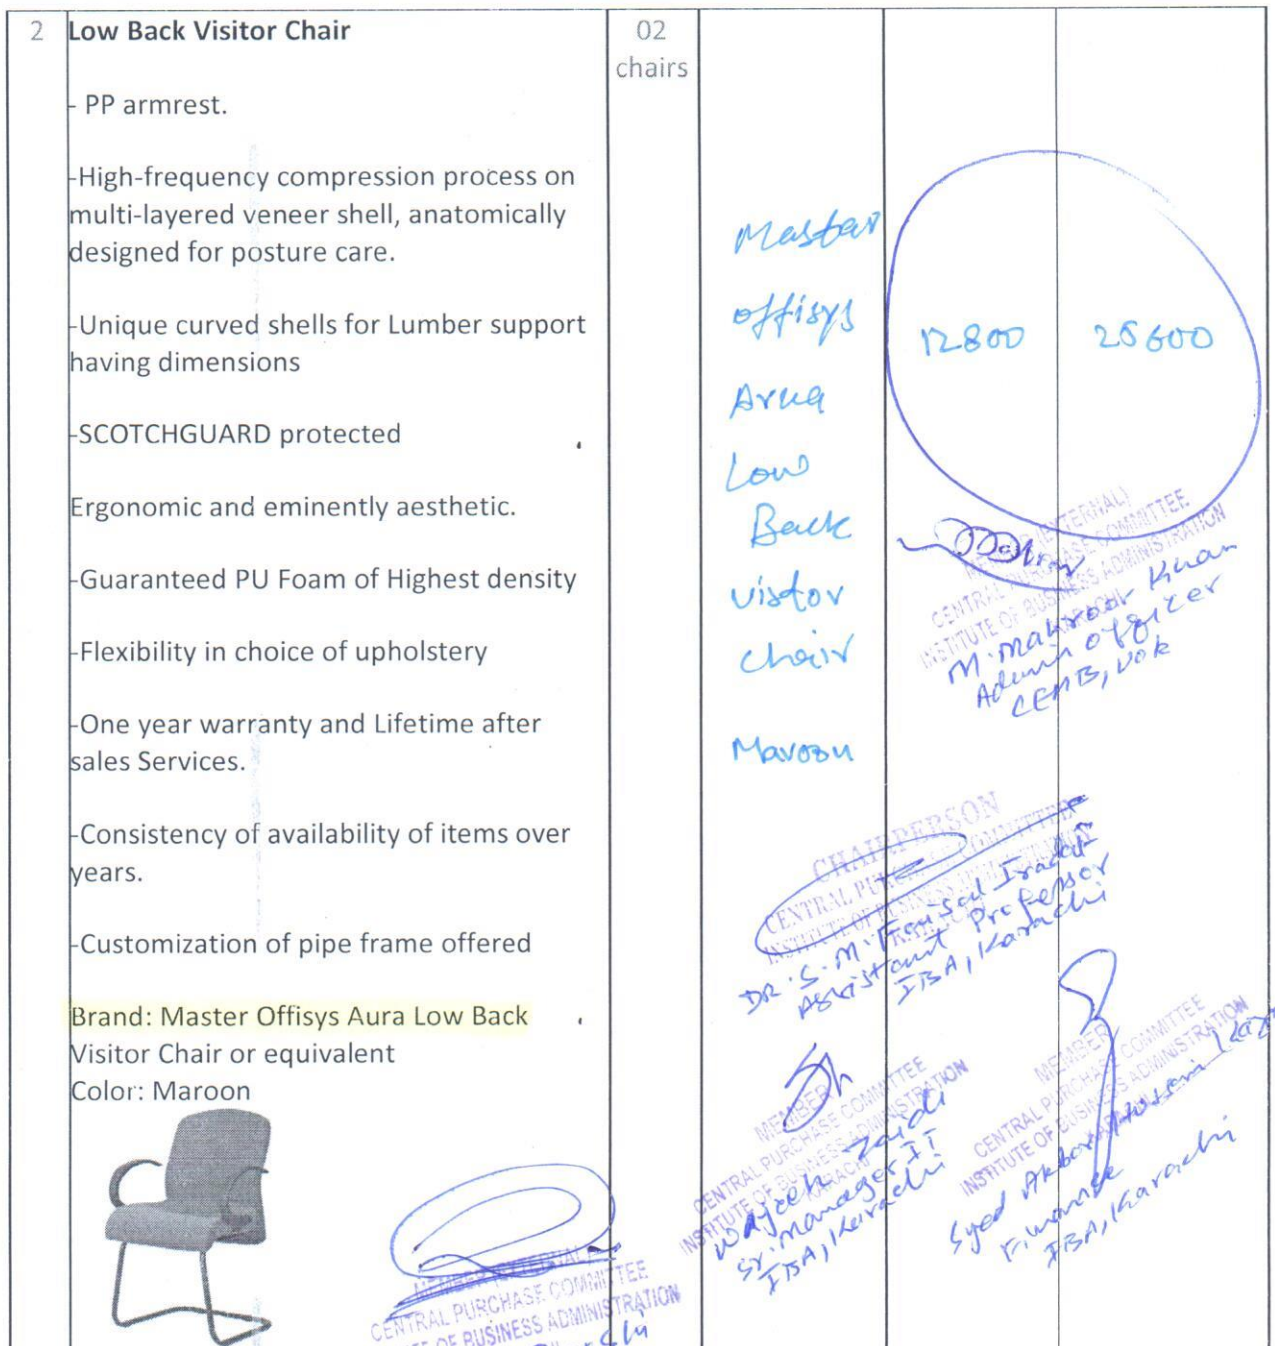 2 Low Back Visitor Chair 02
chairs
- PP armrest.
-High-frequency compression process on
multi-layered veneer shell, anatomically
designed for posture care.
-Unique curved shells for Lumber support
having dimensions
-SCOTCHGUARD protected
Ergonomic and eminently aesthetic.
-Guaranteed PU Foam of Highest density
-Flexibility in choice of upholstery
-One year warranty and Lifetime after
sales Services.
-Consistency of availability of items over
years.
-Customization of pipe frame offered
Brand: Master Offisys Aura Low Back
Visitor Chair or equivalent
Color: Maroon
Master
offisys
Low
Back
vistor
chair
Maroon
12800 25600
(EXTERNAL)
CENTRAL PURCHASE COMMITTEE
INSTITUTE OF BUSINESS ADMINISTRATION
KARACHI
Khan
Admin officer
CHAIRPERSON
CENTRAL PURCHASE COMMITTEE
INSTITUTE OF BUSINESS ADMINISTRATION
DR. S. M. Faisal Iradat
Assistant Professor
IBA, Karachi
MEMBER
CENTRAL PURCHASE COMMITTEE
INSTITUTE OF BUSINESS ADMINISTRATION
KARACHI
Wajeeh Zaidi
Sr. Manager IT
IBA, Karachi
MEMBER
CENTRAL PURCHASE COMMITTEE
INSTITUTE OF BUSINESS ADMINISTRATION
Syed Akbar
Finance
IBA, Karachi
MEMBER (EXTERNAL)
CENTRAL PURCHASE COMMITTEE
OF BUSINESS ADMINISTRATION